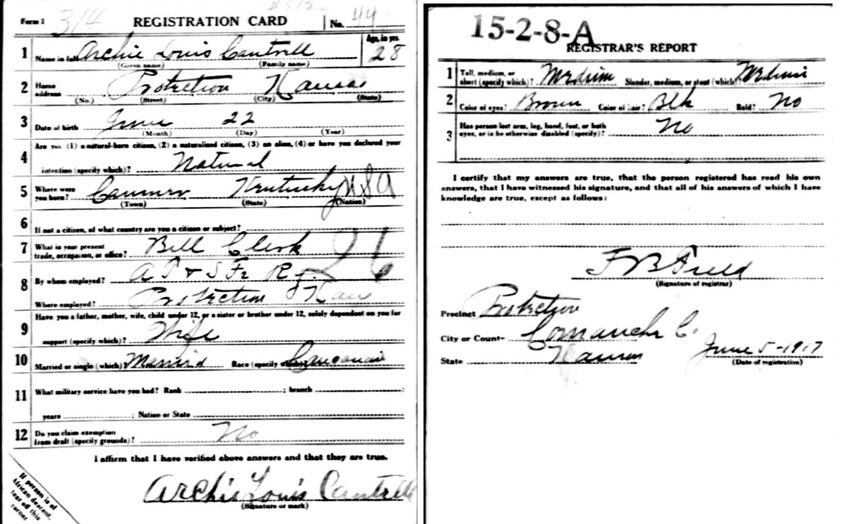 Form 1 3/4 REGISTRATION CARD No. 44
1 Name in full Archie Louis Cantrell Age, in yrs. 28
(Given name) (Family name)
2 Home address Protection Kansas
(No.) (Street) (City) (State)
3 Date of birth June 22
(Month) (Day) (Year)
Are you (1) a natural-born citizen, (2) a naturalized citizen, (3) an alien, (4) or have you declared your
4 intention (specify which)? Natural
5 Where were you born? Kentucky USA
(Town) (State) (Nation)
6 If not a citizen, of what country are you a citizen or subject?
7 What is your present trade, occupation, or office? Bill Clerk 26
8 By whom employed? A T & S Fe Ry.
Where employed? Protection Kan
Have you a father, mother, wife, child under 12, or a sister or brother under 12, solely dependent on you for
9 support (specify which)? Wife
10 Married or single (which)? Married Race (specify which)? Caucasian
11 What military service have you had? Rank ; branch
years ; Nation or State
12 Do you claim exemption from draft (specify grounds)? No
I affirm that I have verified above answers and that they are true.
Archie Louis Cantrell
(Signature or mark)
If person is of
African descent,
tear off this
corner
15-2-8-A
REGISTRAR'S REPORT
1 Tall, medium, or short (specify which)? Medium Slender, medium, or stout (which)? Medium
2 Color of eyes? Brown Color of hair? Blk Bald? No
3 Has person lost arm, leg, hand, foot, or both eyes, or is he otherwise disabled (specify)? No
I certify that my answers are true, that the person registered has read his own
answers, that I have witnessed his signature, and that all of his answers of which I have
knowledge are true, except as follows:
(Signature of registrar)
Precinct Protection
City or County Comanche C.
State Kansas June 5-1917
(Date of registration)